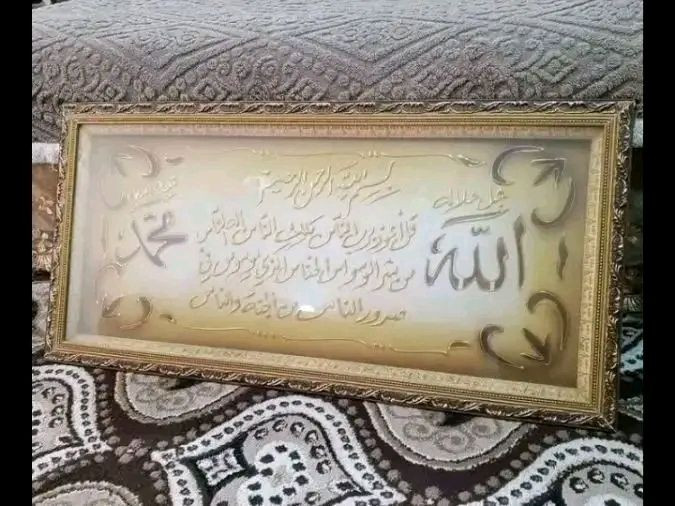 بسم الله الرحمن الرحيم
جل جلاله
الله
قل اعوذ برب الناس ملك الناس اله الناس
من شر الوسواس الخناس الذي يوسوس في
صدور الناس من الجنة والناس
محمد